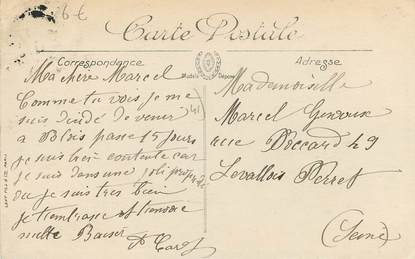 6€
Carte Postale
Correspondance
Modèle Déposé
Adresse
Ma chère Marcel
Comme tu vois je me
suis décidé de venir
a Blois passe 15 jours
je suis bien contente car
je suis dans une joli
ou je suis tres bien
je t'embrasse et t'envoie
mille Baiser
Mademoiselle
Marcel
rue 49
Levallois Perret
(Seine)